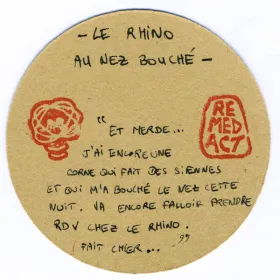 - LE RHINO
AU NEZ BOUCHÉ -
RE
MED
ACT
" ET MERDE...
J'AI ENCORE UNE
CORNE QUI FAIT DES SIENNES
ET QUI M'A BOUCHÉ LE NEZ CETTE
NUIT. VA ENCORE FALLOIR PRENDRE
RDV CHEZ LE RHINO.
FAIT CHIER... "